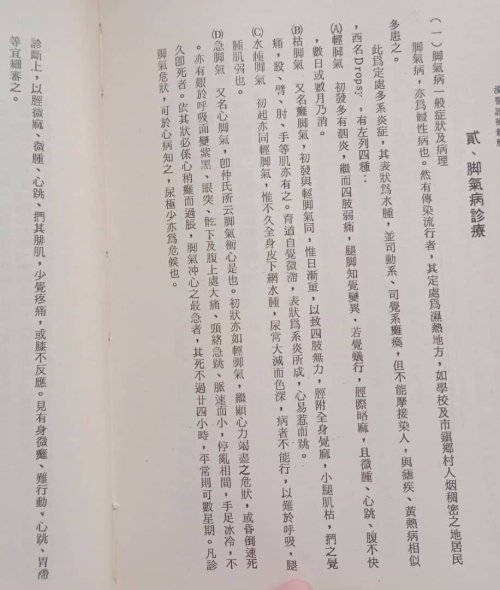 貳、脚氣病診療
(一)脚氣病一般症狀及病理
脚氣病,亦爲慢性病也。然有傳染流行者,其定處爲濕熱地方,如學校及市鎮鄉村人烟稠密之地居民
多患之。
此爲定處多系炎症,其表狀爲水腫,並司動系、司覺系癱瘓,但不能摩接染人,與瘧疾、黃熱病相似
,西名Dropsy,有左列四種:
(A)輕脚氣 初發多有泗炎,繼而四肢弱痛,腿脚知覺變異,若覺蟻行,脛際略麻,且微腫、心跳、腹不快
,數日或數月乃消。
(B)枯脚氣 又名癱脚氣,初發與輕脚氣同,惟日漸重,以致四肢無力,脛附全身覺麻,小腿肌枯,捫之覺
痛,股、臂、肘、手等肌亦有之。育道自覺微滯,表狀爲系炎所成,心易惹而跳。
(C)水腫脚氣 初起亦同輕脚氣,惟不久全身皮下網水腫,尿常大減而色深,病者不能行,以難於呼吸,腿
腫肌弱也。
(D)急脚氣 又名心脚氣,卽仲氏所云脚氣衝心是也。初狀亦如輕脚氣,繼顯心力竭盡之危狀,或昏倒速死
。亦有艱於呼吸而變紫黑、眼突、骶下及腹上處大痛、頸絡急跳、脈速而小,停亂相間,手足冰冷,不
久卽死者。依其狀必係心稍癱而過脹,脚氣冲心之最急者,其死不過廿四小時,平常則可數星期。凡診
脚氣危狀,可於心病知之,尿極少亦爲危候也。
診斷上,以脛微麻、微腫、心跳、捫其腓肌,少覺疼痛,或膝不反應。見有身微癱、難行動、心跳、胃滯
等宜細審之。